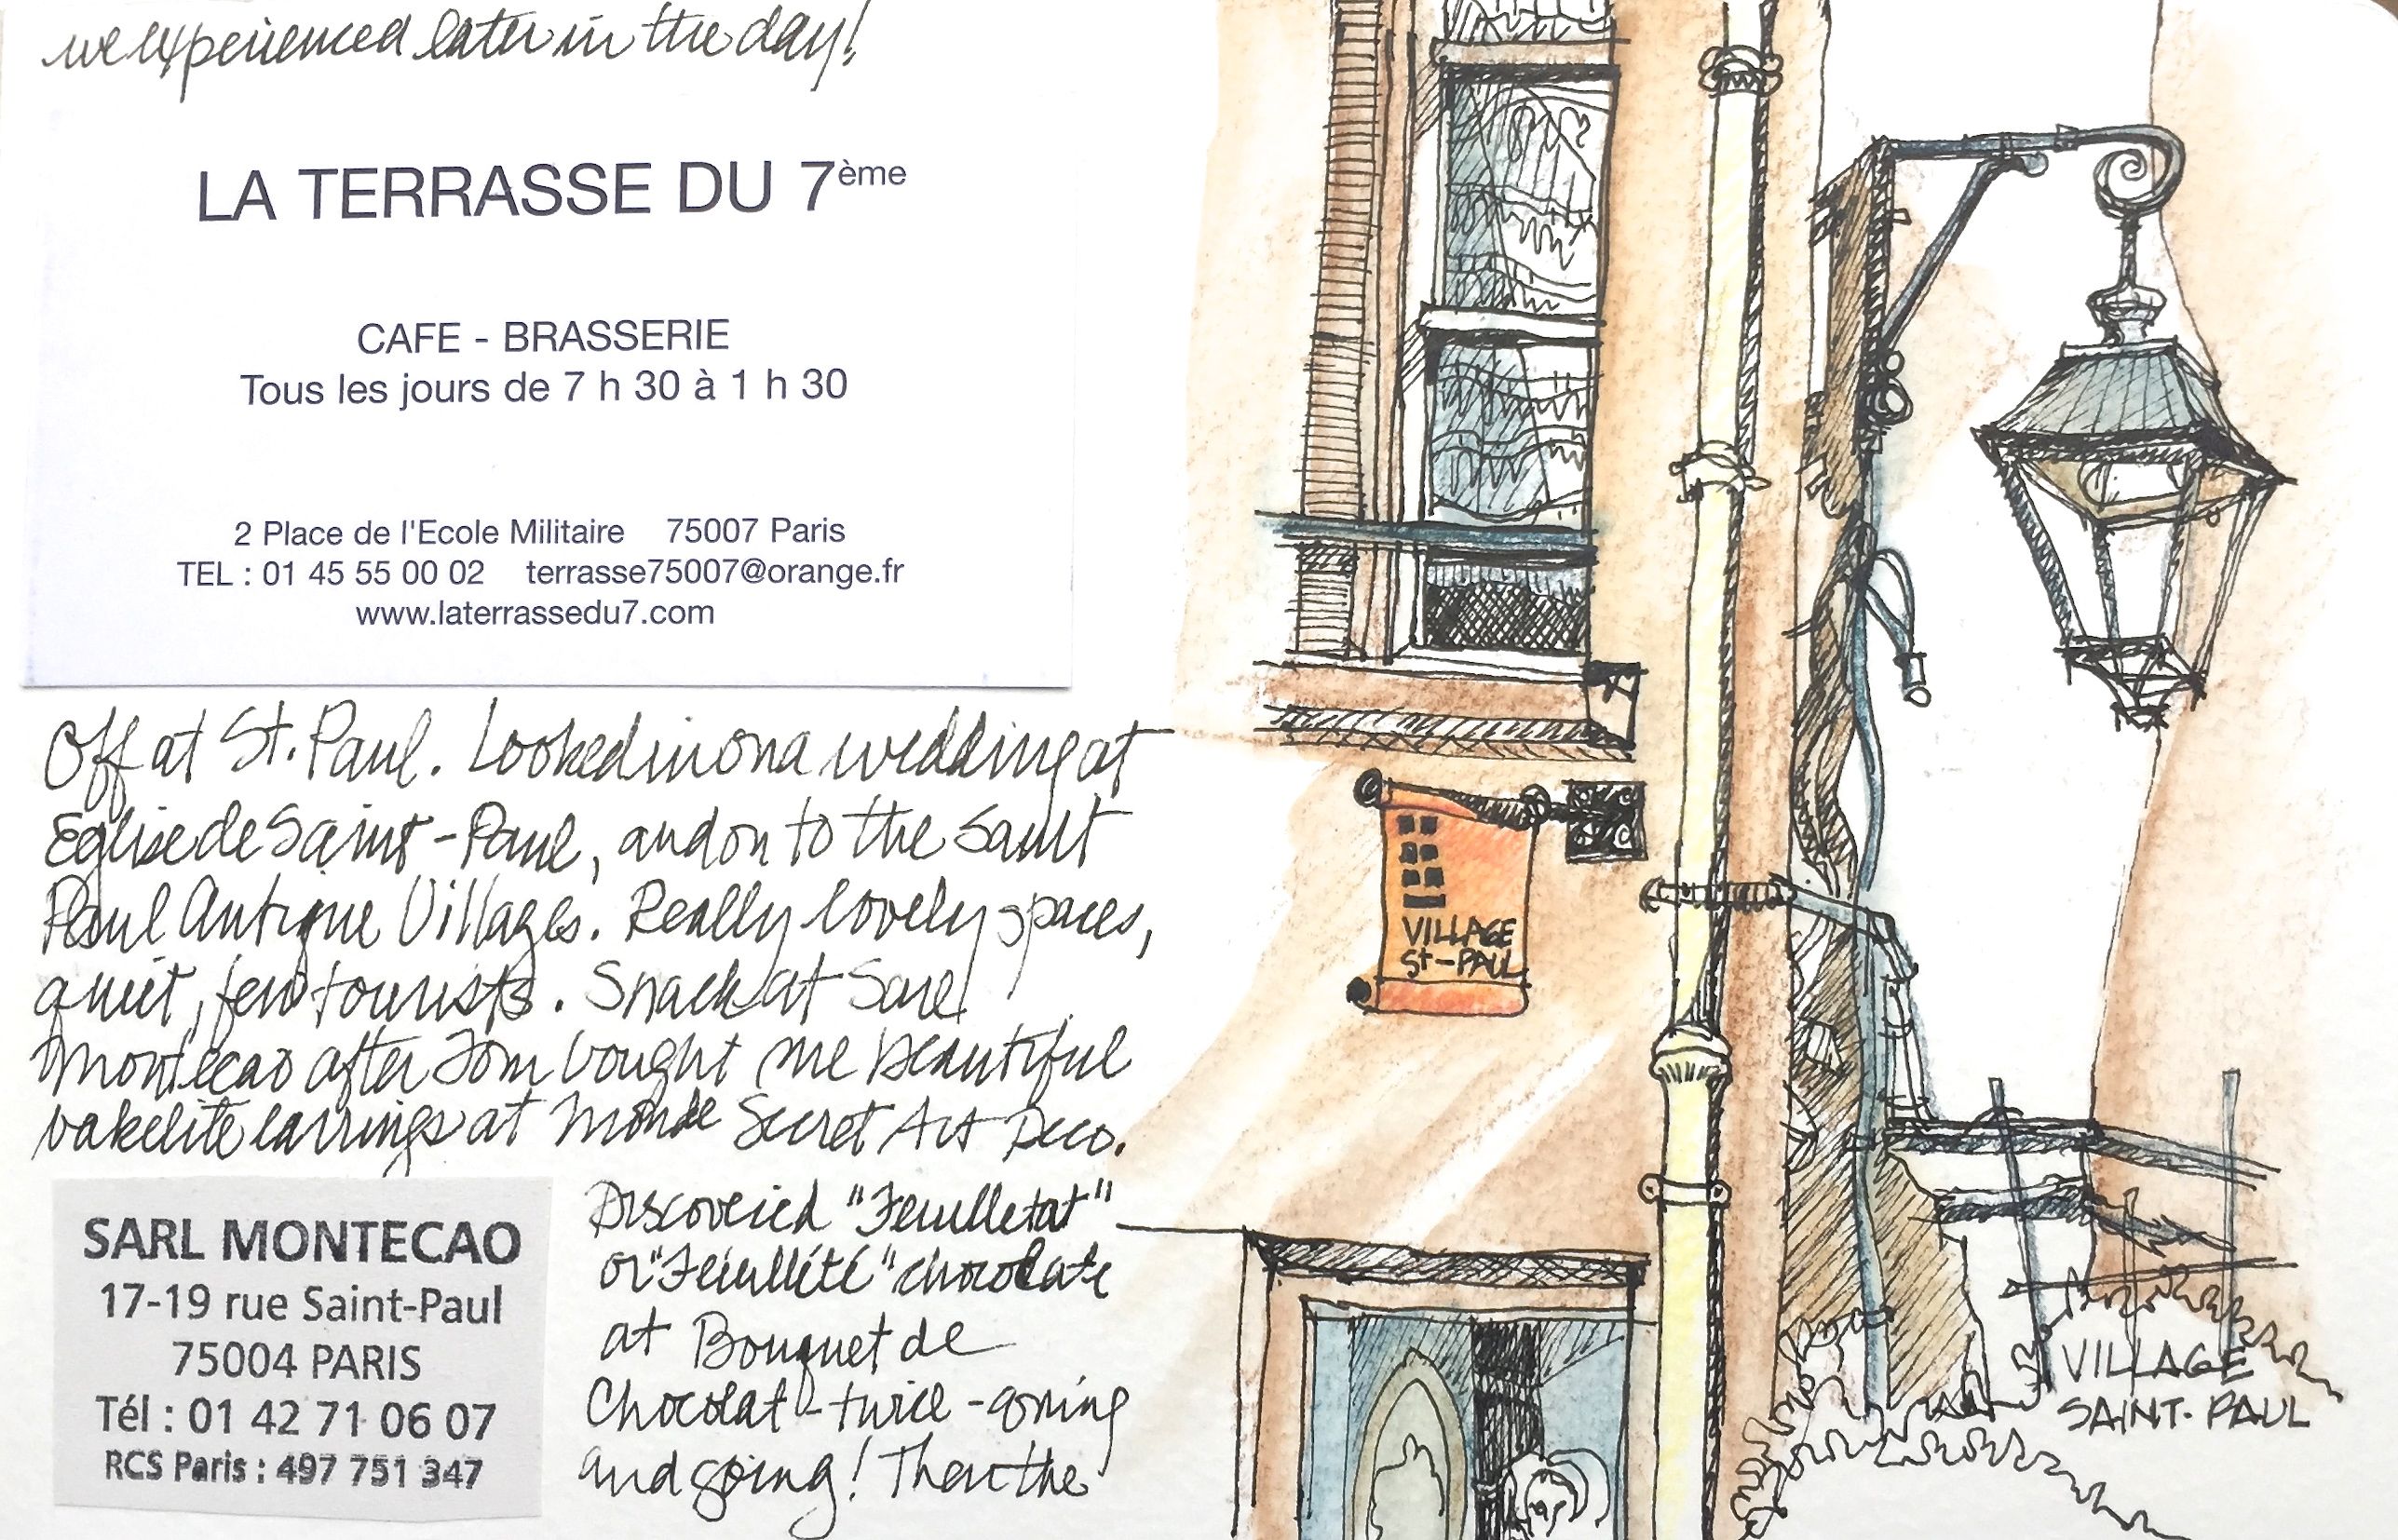 we experienced later in the day!
LA TERRASSE DU 7ème
CAFE - BRASSERIE
Tous les jours de 7 h 30 à 1 h 30
2 Place de l'Ecole Militaire 75007 Paris
TEL : 01 45 55 00 02 terrasse75007@orange.fr
www.laterrassedu7.com
Off at St. Paul. Looked in on a wedding at
Eglise de Saint-Paul, and on to the Saint
Paul Antique Villages. Really lovely spaces,
quiet, few tourists. Snack at Sarl
Montecao after Tom bought me beautiful
bakelite earrings at Monde Secret Art Deco.
SARL MONTECAO
17-19 rue Saint-Paul
75004 PARIS
Tél : 01 42 71 06 07
RCS Paris : 497 751 347
Discovered "Feuilletat"
or "Feuilleté" chocolate
at Bouquet de
Chocolat - twice - coming
and going! Then the
VILLAGE
St-PAUL
VILLAGE
SAINT-PAUL